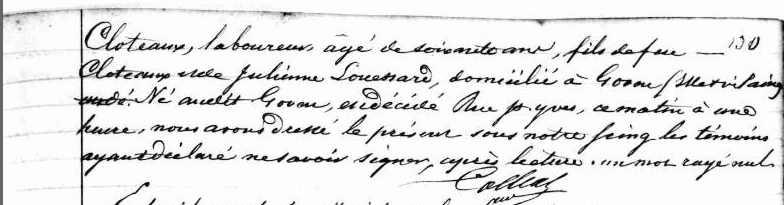 Cloteaux, laboureur, âgé de soixante ans, fils de feu — 130
Cloteaux et de Julienne Louessard, domicilié à Goven (Ille et Vilaine)
Né audit Goven, est décédé Rue St. Yves, ce matin à une
heure, nous avons dressé le présent sous notre seing les témoins
ayant déclaré ne savoir signer, après lecture. un mot rayé nul.